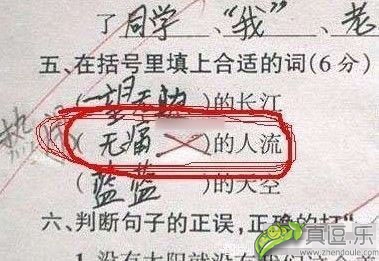 了同学、"我"、老
五、在括号里填上合适的词(6分)
(一望无  )的长江
(无痛  )的人流
(蓝蓝)的天空
六、判断句子的正误,正确的打"
真逗.乐
www.zhendoule.com